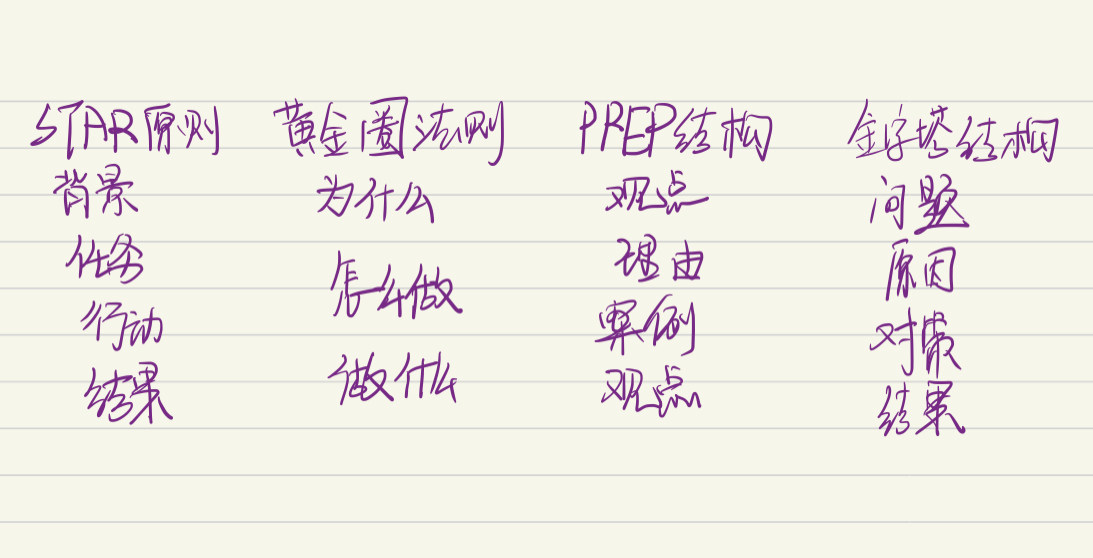 STAR原则 黄金圈法则 PREP结构 金字塔结构
背景 为什么 观点 问题
任务 怎么做 理由 原因
行动 做什么 案例 对策
结果 观点 结果